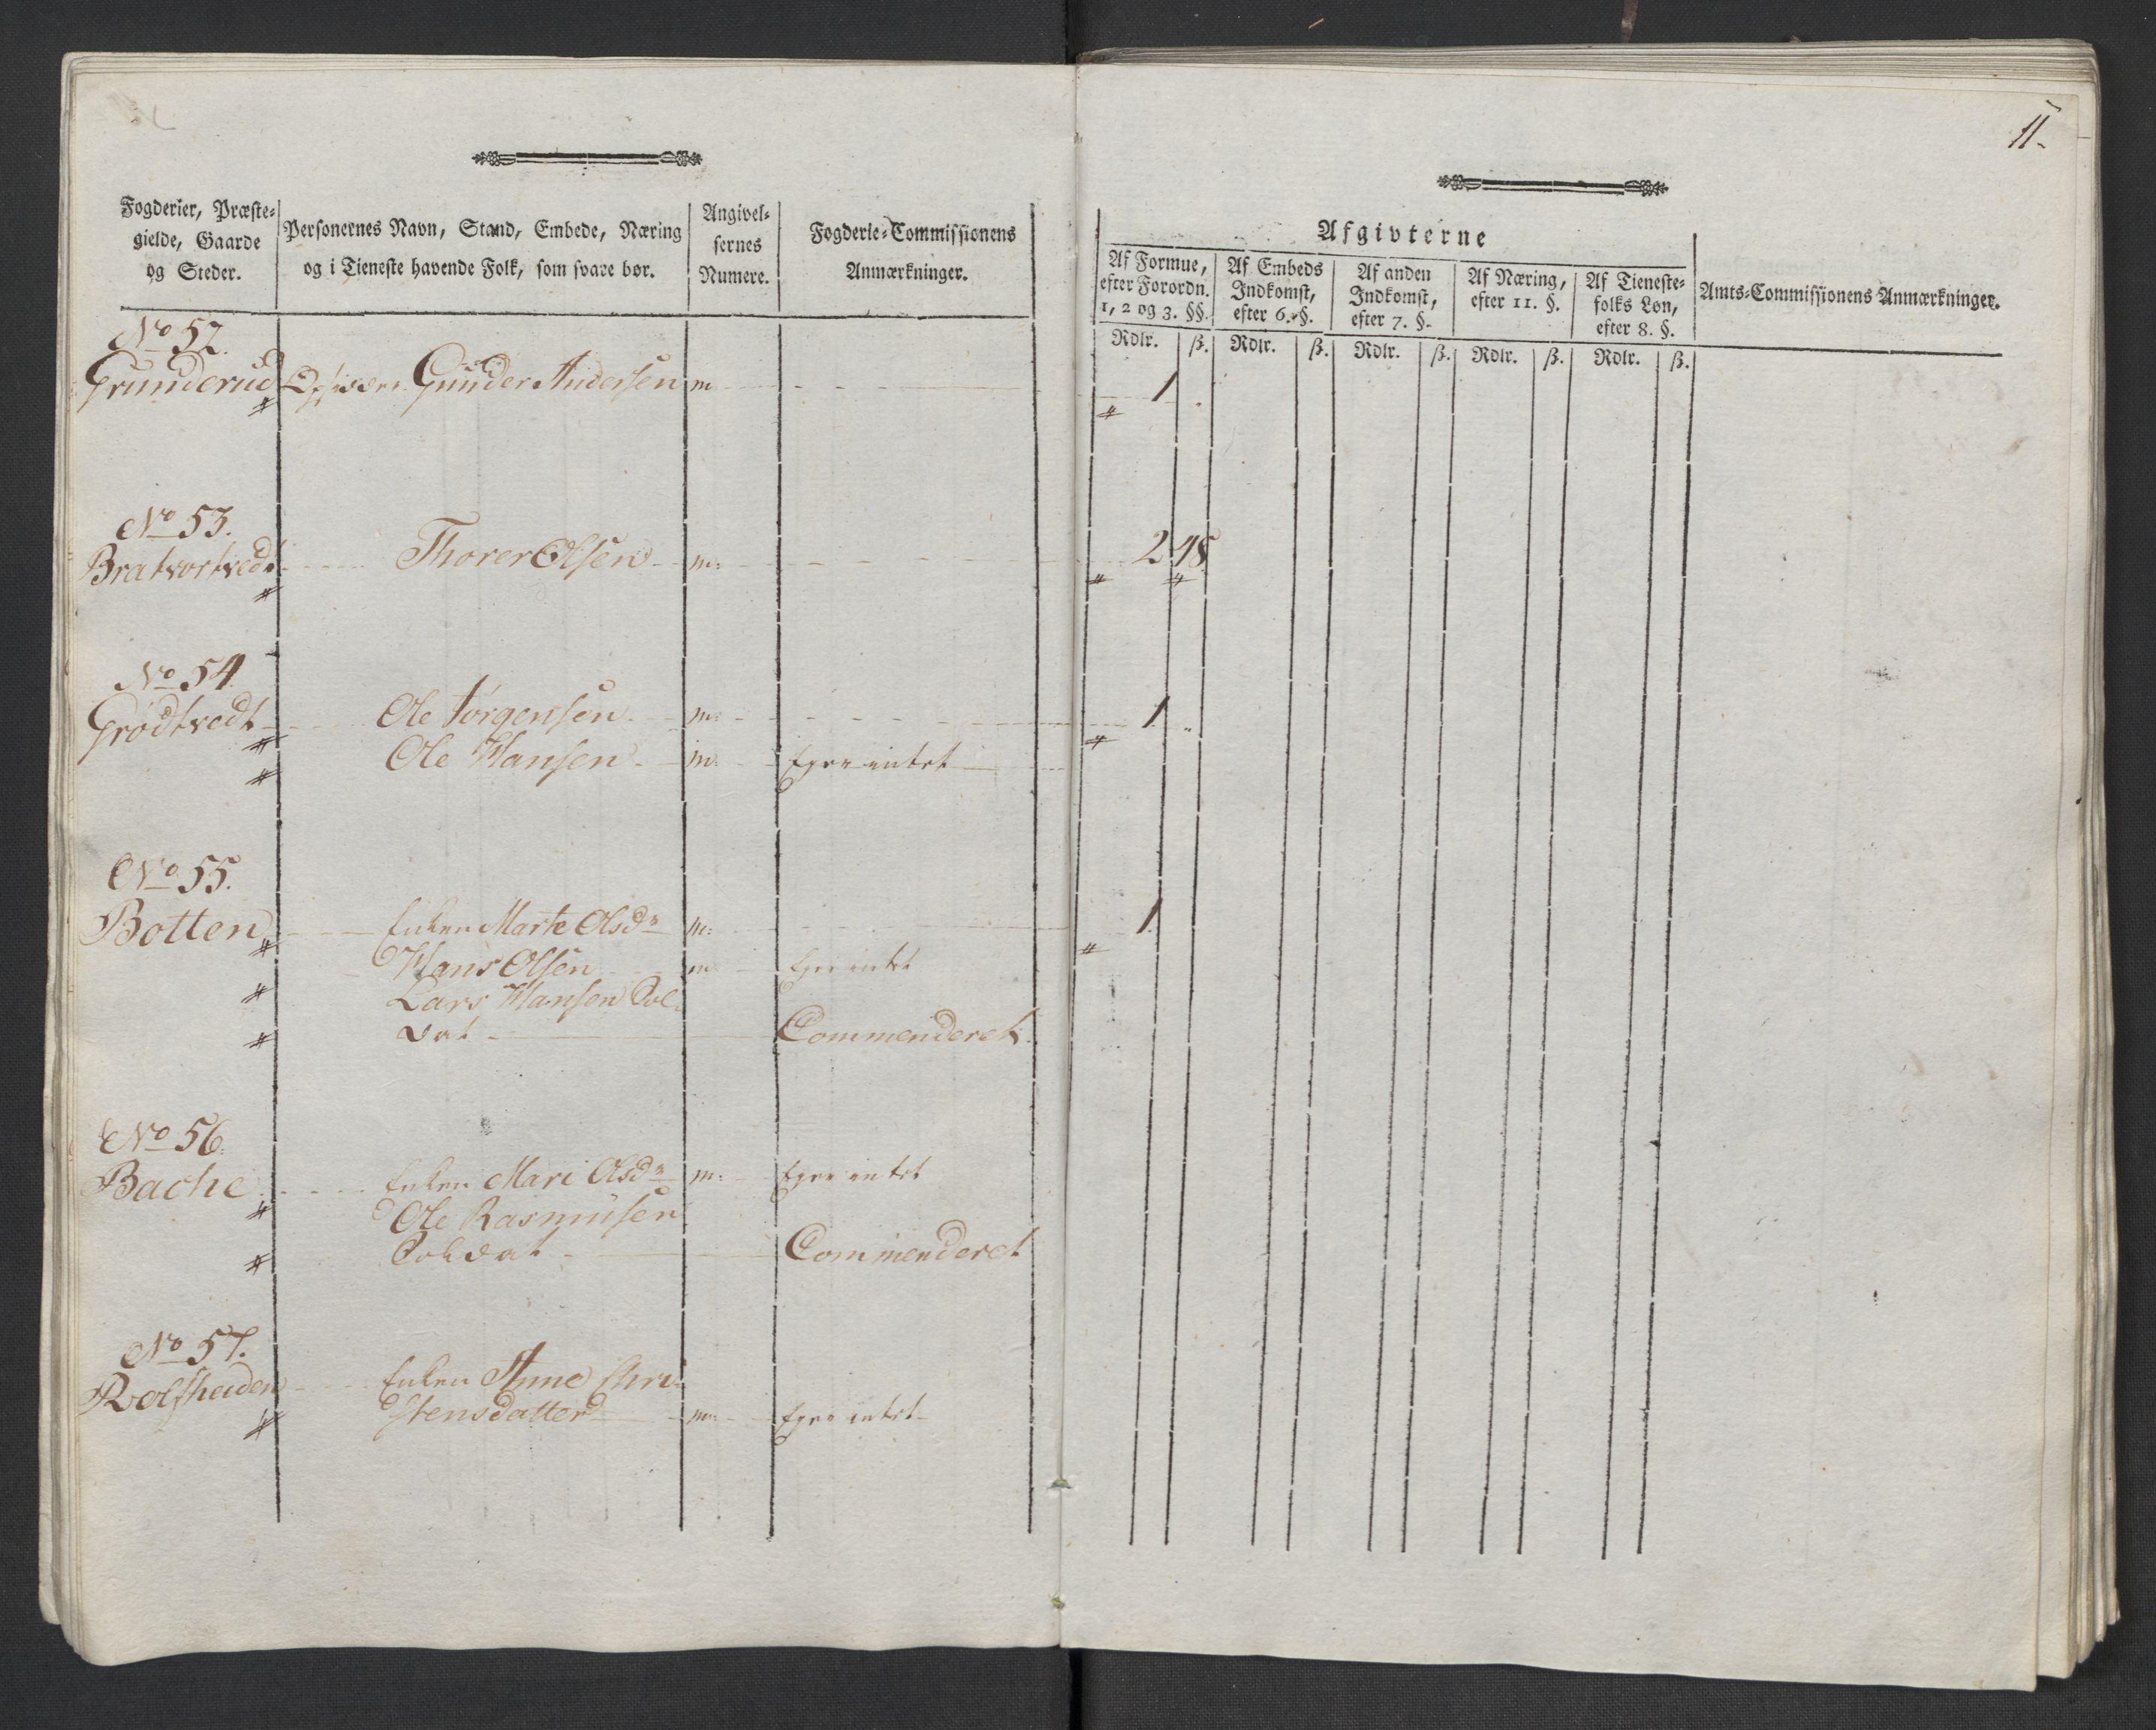 11.
Fogderier, Præste-
gielde, Gaarde
og Steder.
Personernes Navn, Stand, Embede, Næring
og i Tieneste havende Folk, som svare bør.
Angivel-
sernes
Numere.
Fogderie-Commissionens
Anmærkninger.
Afgivterne
Af Formue,
efter Forordn.
1, 2 og 3. §§.
Af Embeds
Indkomst,
efter 6. §.
Af anden
Indkomst,
efter 7. §.
Af Næring,
efter 11. §.
Af Tieneste-
folks Løn,
efter 8. §.
Amts-Commissionens Anmærkninger.
Rdlr. ß. Rdlr. ß. Rdlr. ß. Rdlr. ß. Rdlr. ß.
No 52.
Grunderud Gunder Andersen m 1
No 53.
Thorer Olsen m: 2 48
No 54
Grødtvedt Ole Jørgensen m: 1
Ole Hansen m: Eyer intet
No 55.
Botten Enken Marte Olsdr m: 1
Hans Olsen m Eyer intet
Lars Hansen Sol-
dat Commenderet
No 56.
Bache Enken Mari Olsdr m: Eyer intet
Ole Rasmusen
Soldat Commenderet
No 57.
Rolfsheiden Enken Anne Chri-
stensdatter m: Eyer intet